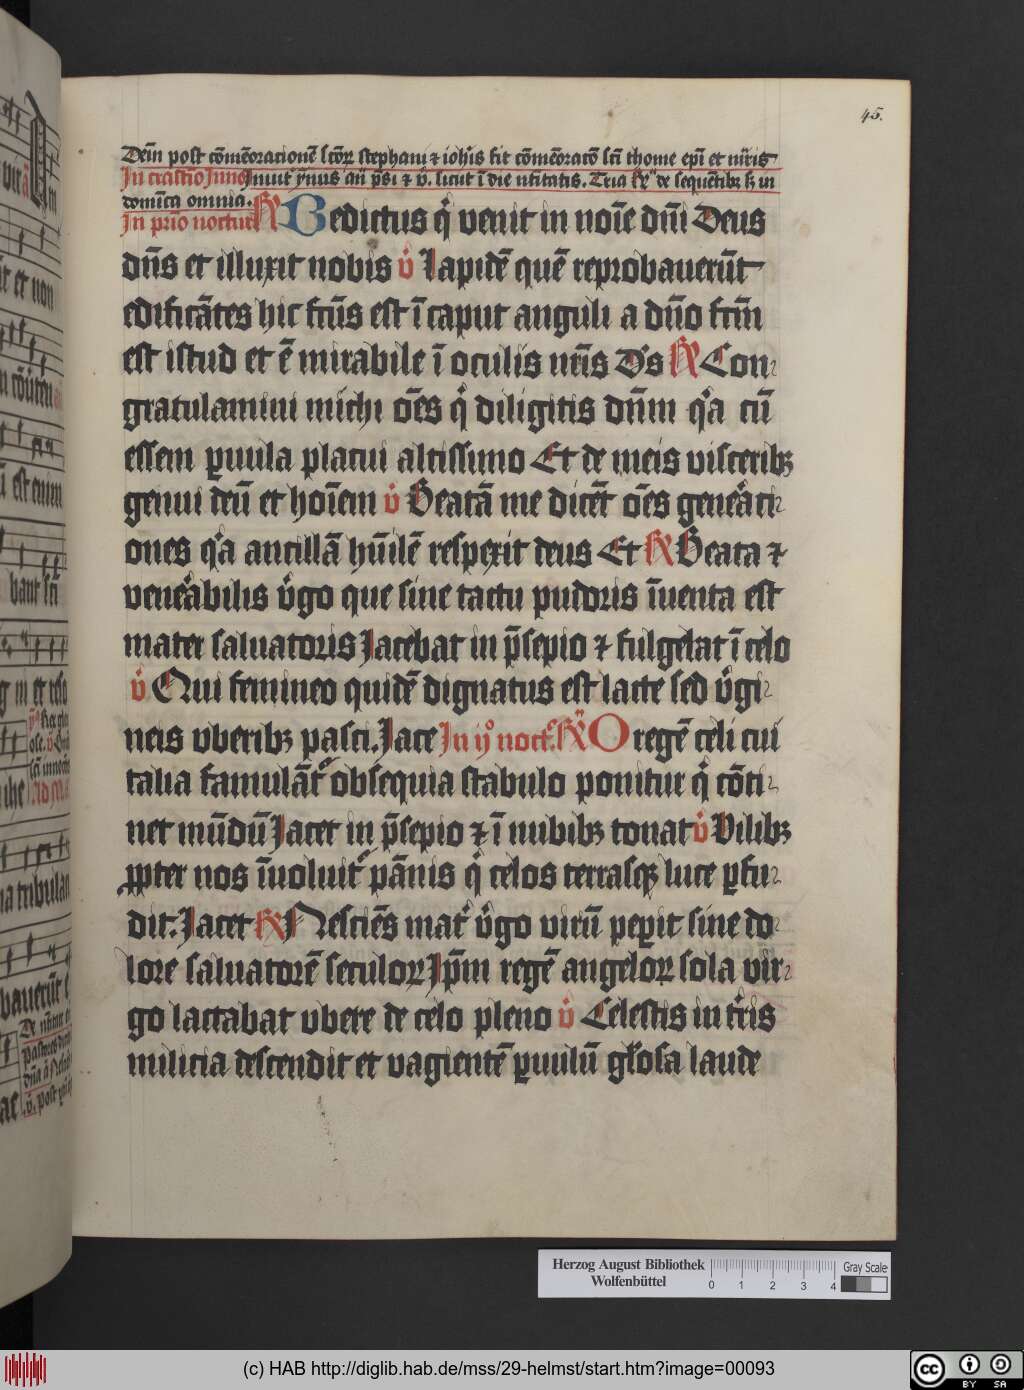 45.
Deīn post cōmēoracionē sctōꝝ stephani ⁊ ioh̄is fit cōmēoracō scī thome epī et mr̄is
In crastīo Innocentū Inuit ẏnus añ psī ⁊ v̄. sicut ī die natitatis. Tria R̄ de sequētibꝫ sꝫ in
domīca omnia.
In prīo nocturno R̄ Bn̄dictus q̇ venit in noīe dn̄i Deus
dn̄s et illuxit nobis v̄ Lapidē quē reprobauerūt
edificātes hic fcūs est ī caput anguli a dn̄o fcm̄
est istud et ē mirabile ī oculis nr̄is D̄s R̄ Con
gratulamini michi ōēs q̇ diligitis dn̄m q̇a cū
essem ꝑuula placui altissimo Et de meis visceribꝫ
genui deū et hoīem v̄ Beatā me dicēt ōēs genea̍ti
ones q̇a ancillā hūilē respexit deus Et R̄ Beata ⁊
venea̍bilis v̍go que sine tactu pudoris īuenta est
mater saluatoris Iacebat in p̄sepio ⁊ fulgebat ī celo
v̄ Qui femineo quidē dignatus est lacte sed v̍gi
neis vberibꝫ pasci. Jace In ijº noct. R̄ O regē celi cui
talia famulāt᷑ obsequia stabulo ponitur q̇ cōti
net mūdū Jacet in p̄sepio ⁊ ī nubibꝫ tonat v̄ Vilibꝫ
ꝓpter nos īuoluit᷑ pānis q̇ celos terrasqꝫ luce ꝑfu
dit. Jacet R̄ Nesciēs mat̍ v̍go virū peꝑit sine do
lore saluatorē seculoꝝ Ip̄m regē angeloꝝ sola vir
go lactabat vbere de celo pleno v̄ Celestis in t̍ris
milicia descendit et vagientē ꝑuulū gl̄osa laude
Herzog August Bibliothek
Wolfenbüttel
0 1 2 3 4
Gray Scale
(c) HAB http://diglib.hab.de/mss/29-helmst/start.htm?image=00093
cc BY SA